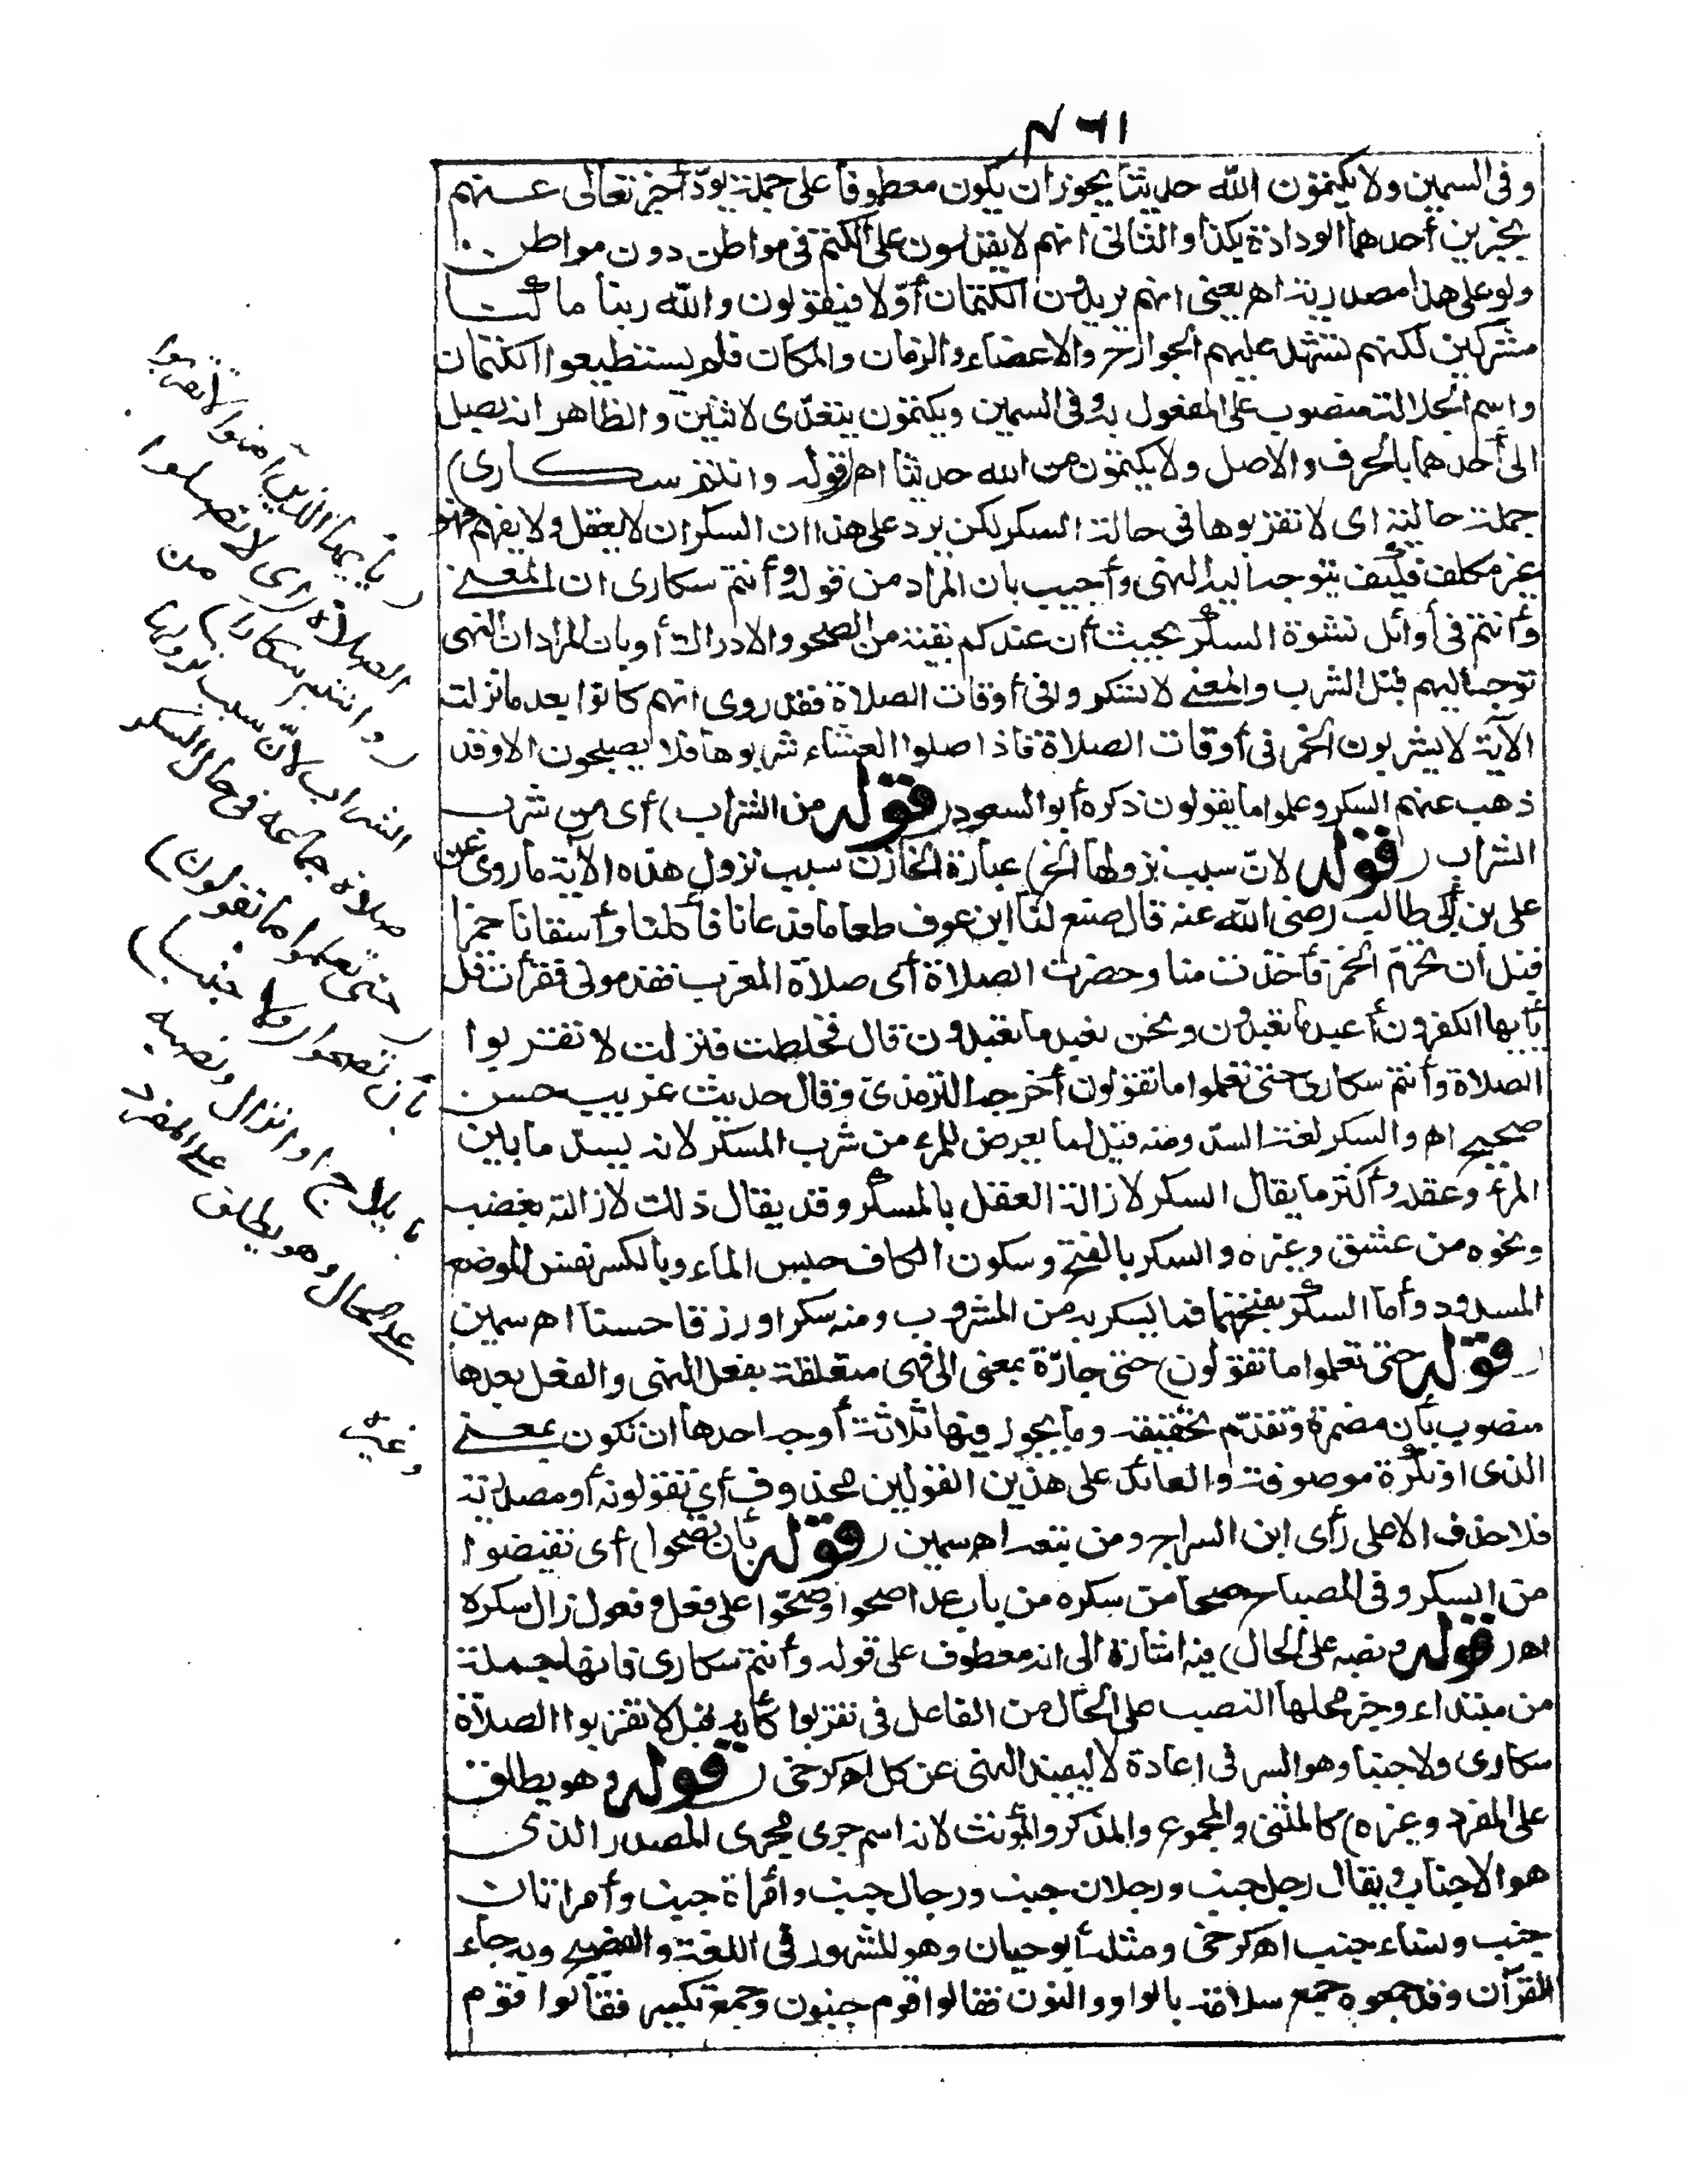 ٤٦١
وفى السمين ولا يكتمون الله حديثا يجوز ان يكون معطوفا على جملة يودّ أخبر تعالى عنهم
بخبرين أحدهما الودادة بكذا والثانى انهم لا يقدرون على الكتم فى مواطن دون مواطن
ولو على هذا مصدرية اهر يعنى انهم يريدون الكتمان أوّلا فيقولون والله ربنا ما كنا
مشركين لكنهم تشهد عليهم الجوارح والاعضاء والزمان والمكان فلم يستطيعوا الكتمان
واسم الجلالة منصوب على المفعول به وفى السمين ويكتمون يتعدّى لاثنين والظاهر انه يصل
الى أحدهما بالحرف والاصل ولا يكتمون من الله حديثا اهر (قوله وانتم سكارى)
جملة حالية اى لا تقربوها فى حالة السكر لكن يرد على هذا ان السكران لا يعقل ولا يفهم فهو
غير مكلف فكيف يتوجه اليه النهى وأجيب بان المراد من قوله وأنتم سكارى ان المعنى
وأنتم فى أوائل نشوة السكر بحيث أن عندكم بقية من الصحو والادراك أو بان المراد ان النهى
توجه اليهم قبل الشرب والمعنى لا تسكروا فى أوقات الصلاة فقد روى انهم كانوا بعد ما نزلت
الآية لا يشربون الخمر فى أوقات الصلاة فاذا صلوا العشاء شربوها فلا يصبحون الا وقد
ذهب عنهم السكر وعلموا ما يقولون ذكره أبو السعود (قوله من الشراب) أى من شرب
الشراب (قوله لانّ سبب نزولها الخ) عبارة الخازن سبب نزول هذه الآية ما روى عن
على بن أبى طالب رضى الله عنه قال صنع لنا ابن عوف طعاما فدعانا فأكلنا وأسقانا خمرا
قبل أن تحرّم الخمر فأخذت منا وحضرت الصلاة أى صلاة المغرب فقدمونى فقرأت قل
يأيها الكفرون أعبد ما تعبدون ونحن نعبد ما تعبدون قال فخلطت فنزلت لا تقربوا
الصلاة وأنتم سكارى حتى تعلموا ما تقولون أخرجه الترمذى وقال حديث غريب حسن
صحيح اهر والسكر لغة السدّ ومنه قيل لما يعرض للمرء من شرب المسكر لانه يسدّ ما بين
المرء وعقله وأكثر ما يقال السكر لازالة العقل بالمسكر وقد يقال ذلك لازالته بغضب
ونحوه من عشق وغيره والسكر بالفتح وسكون الكاف حبس الماء وبالكسر نفس الموضع
المسدود وأما السكر بفتحهما فما يسكر به من المشروب ومنه سكرا ورزقا حسنا اهر سمين
(قوله حتى تعلموا ما تقولون) حتى جارّة بمعنى الى فهى متعلقة بفعل النهى والفعل بعدها
منصوب بأن مضمرة وتقدّم تحقيقه وما يجوز فيها ثلاثة أوجه احدها ان تكون بمعنى
الذى او نكرة موصوفة والعائد على هذين القولين محذوف أى تقولونه أو مصدرية
فلا حذف الا على رأى ابن السراج ومن تبعه اهر سمين (قوله بأن تصحوا) أى تفيضوا
من السكر وفى المصباح صحا من سكره من باب عدا صحوا وصحوّا على فعل وفعول زال سكره
اهر (قوله ونصبه على الحال) فيه اشارة الى انه معطوف على قوله وأنتم سكارى فانها جملة
من مبتداء وخبر محلها النصب على الحال من الفاعل فى تقربوا كأنه قيل لا تقربوا الصلاة
سكارى ولا جنبا وهو السر فى اعادة لا ليفيد النهى عن كل اهر كرخى (قوله وهو يطلق
على المفرد وغيره) كالمثنى والمجموع والمذكر والمؤنث لانه اسم جرى مجرى المصدر الذى
هو الاجناب ويقال رجل جنب ورجلان جنب ورجال جنب وامرأة جنب وأمراتان
جنب ونساء جنب اهر كرخى ومثله أبو حيان وهو المشهور فى اللغة والفصيح وبه جاء
القرآن وقد جمعوه جمع سلامة بالواو والنون فقالوا قوم جنبون وجمع تكسير فقالوا قوم
(يأيها الذين آمنوا لا تقربوا
الصلاة) اى لا تصلوا
(وانتم سكارى) من
الشراب لانّ سبب نزولها
صلاة جماعة فى حال السكر
(حتى تعلموا ما تقولون)
بأن تصحوا (ولا جنبا)
بايلاج او انزال ونصبه
على الحال وهو يطلق على المفرد
وغيره